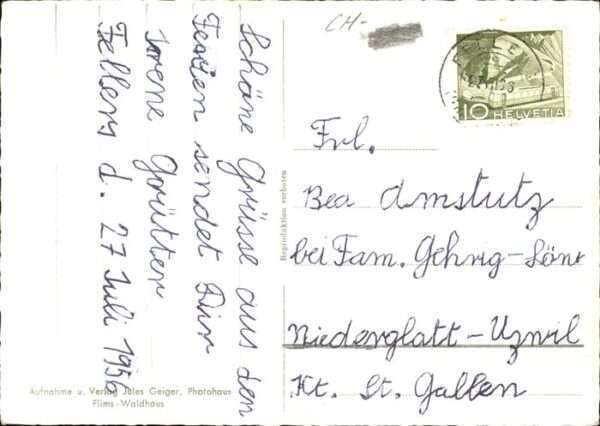 Schöne Grüsse aus den
Ferien sendet Dir
Irene Grütter
Fellers d. 27 Juli 1956
CH-
FELLERS
10 HELVETIA
Frl.
Bea Amstutz
bei Fam. Gehrig-Lönt
Niederglatt-Uzwil
Kt. St. Gallen
Reproduktion verboten
Aufnahme u. Verlag Jules Geiger, Photohaus
Flims-Waldhaus